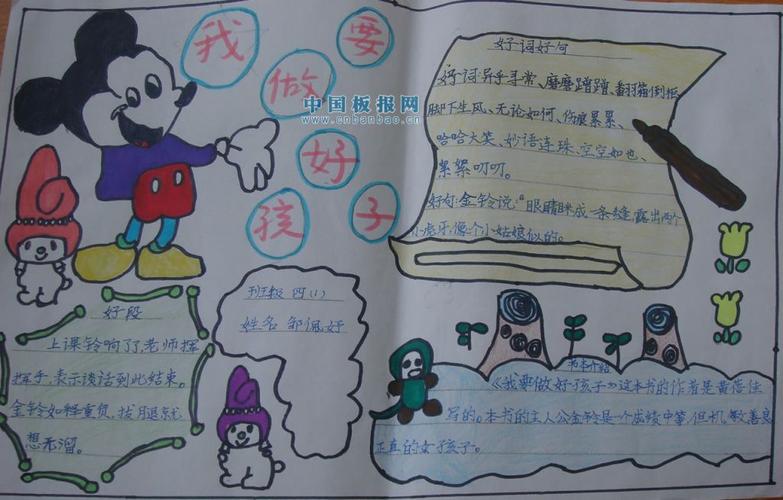 我要
做
好
孩子
中国板报网
www.cnbanbao.cn
好词好句
好词:异乎寻常、磨磨蹭蹭、翻箱倒柜
脚下生风、无论如何、伤痕累累、
哈哈大笑、妙语连珠、空空如也、
絮絮叨叨。
好句:金铃说:“眼睛眯成一条缝,露出两个
小虎牙,像个小姑娘似的。
班级 四(1)
姓名 邹佩妤
好段
上课铃响了,老师挥
挥手,表示谈话到此结束。
金铃如释重负,拔腿就
想开溜。
书本介绍
《我要做好孩子》这本书的作者是黄蓓佳
写的。本书的主人公金铃是个成绩中等,但机敏善良
正直的女孩子。